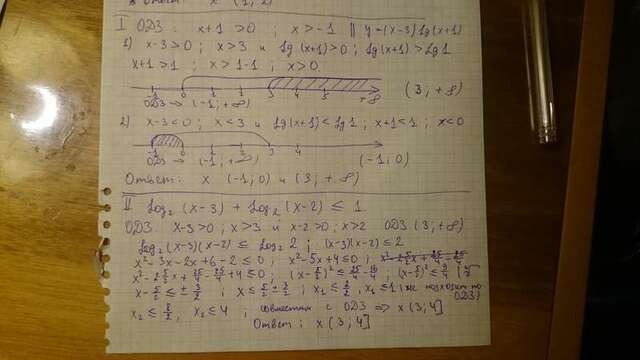 Ответ: x (1; 2)
I ОДЗ: x+1 > 0 ; x > -1 || y = (x-3) lg (x+1)
1) x-3 > 0 ; x > 3 и lg (x+1) > 0 ; lg (x+1) > lg 1
x+1 > 1 ; x > 1-1 ; x > 0
-1 0 1 2 3 4 5 +∞ (3 ; +∞)
ОДЗ → (-1; +∞)
2) x-3 < 0 ; x < 3 и lg (x+1) < lg 1 ; x+1 < 1 ; x < 0
-1 0 1 2 3 4
ОДЗ → (-1; +∞) (-1; 0)
Ответ: x (-1; 0) и (3; +∞)
II Log₂ (x-3) + Log₂ (x-2) ≤ 1
ОДЗ: x-3 > 0 ; x > 3 и x-2 > 0 ; x > 2 ОДЗ (3; +∞)
Log₂ (x-3)(x-2) ≤ Log₂ 2 ; (x-3)(x-2) ≤ 2
x² - 3x - 2x + 6 - 2 ≤ 0 ; x² - 5x + 4 ≤ 0 ;
x² - 2·5/2 x + 25/4 - 25/4 + 4 ≤ 0 ; (x - 5/2)² ≤ 25/4 - 16/4 ; (x - 5/2)² ≤ 9/4
x - 5/2 ≤ ± 3/2 ; x ≤ 5/2 ± 3/2 ; x₁ ≤ 2/2 , x₁ ≤ 1 (не подходит по ОДЗ)
x₂ ≤ 8/2 ; x₂ ≤ 4 ; совместим с ОДЗ => x (3; 4]
Ответ: x (3; 4]